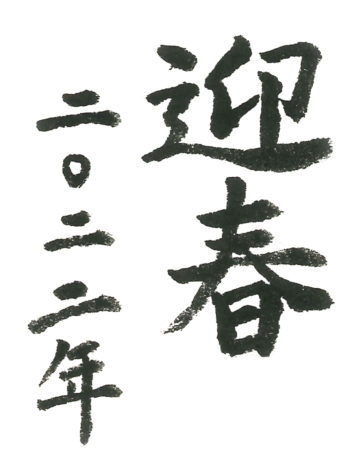 迎春
二〇二二年